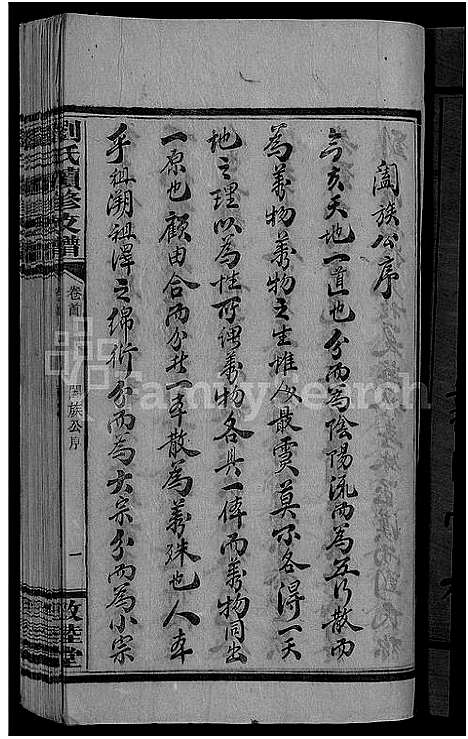 闔族公序
今夫天地一道也分而為陰陽流而為五行散而
為萬物萬物之生惟人最靈莫不各得一天
地之理以為性所謂萬物各具一体而萬物同出
一原也顧由合而分此一本散為萬殊也人本
乎祖溯祖澤之綿衍分而為大宗分而為小宗
劉氏續修支譜
卷首
闔族公序
一
敦睦堂
FamilySearch